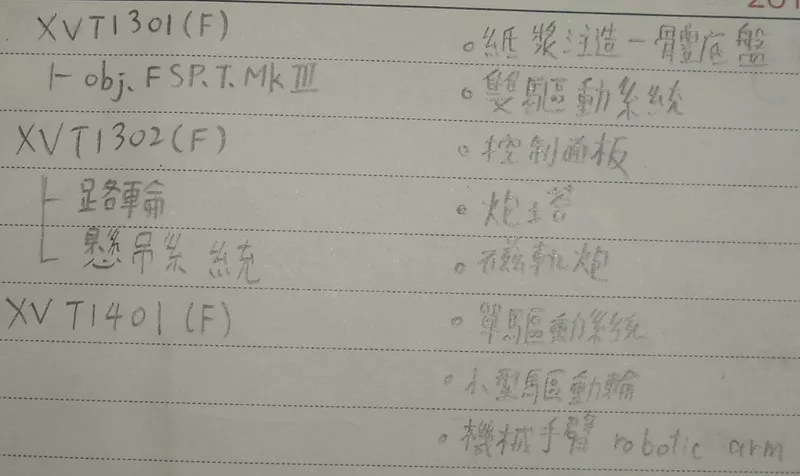 201
XVT1301(F)
├ obj. F SP.T. Mk III
XVT1302(F)
├ 路輪
└ 懸吊系統
XVT1401(F)
。紙漿注造一體底盤
。雙驅動系統
。控制面板
。炮塔
。磁軌炮
。單驅動系統
。小型驅動輪
。機械手臂 robotic arm